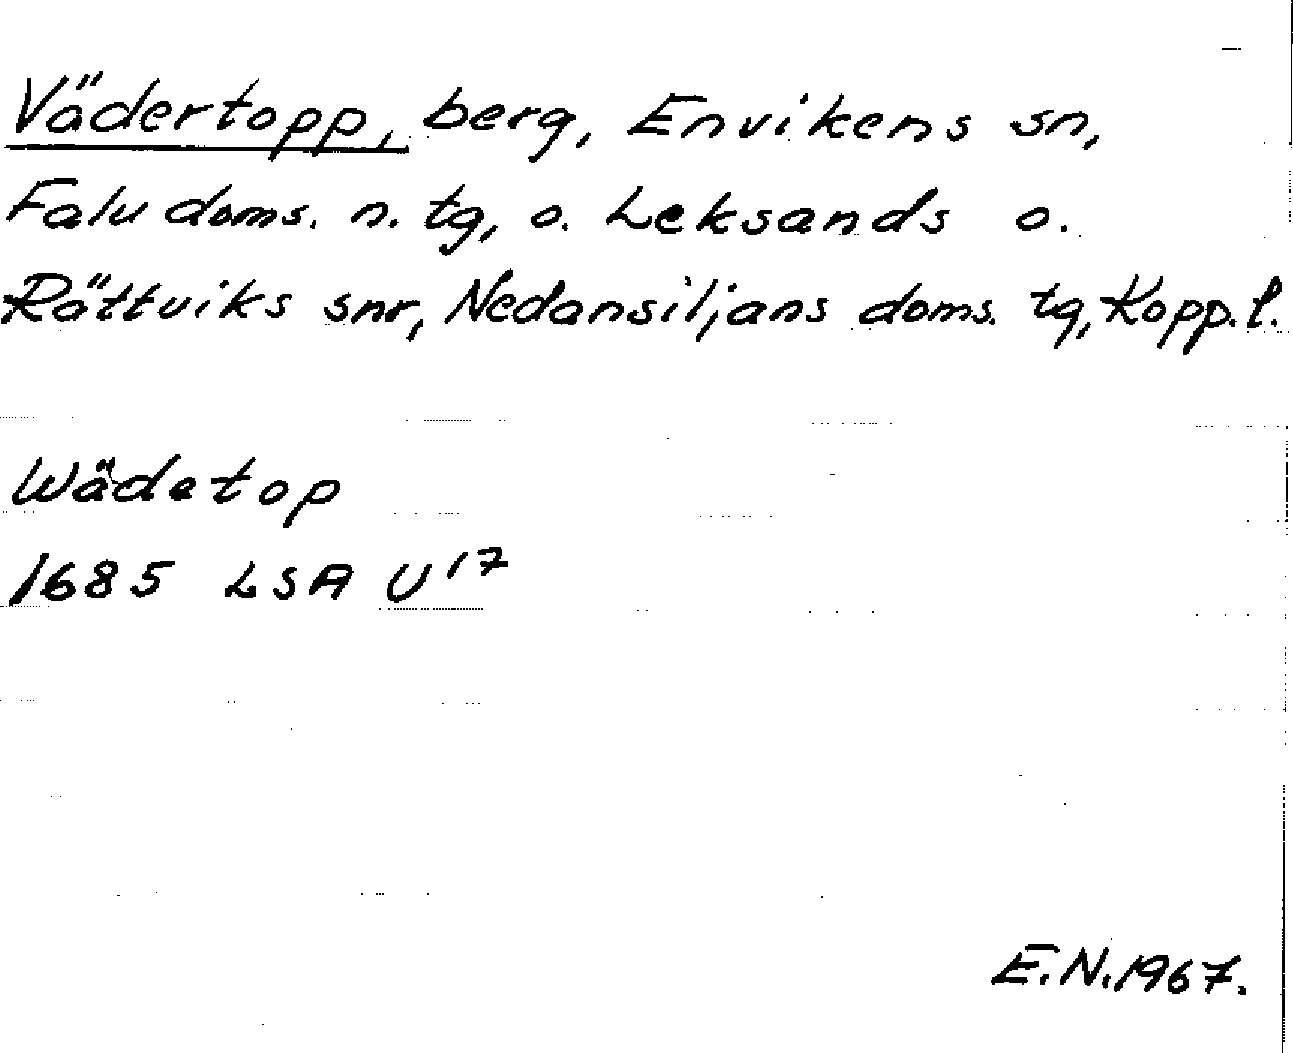 Vädertopp, berg, Envikens sn,
Falu doms. n. tg, o. Leksands o.
Rättviks snr, Nedansiljans doms. tg, Kopp. l.
Wädetop
1685 LSA U17
E.N. 1967.